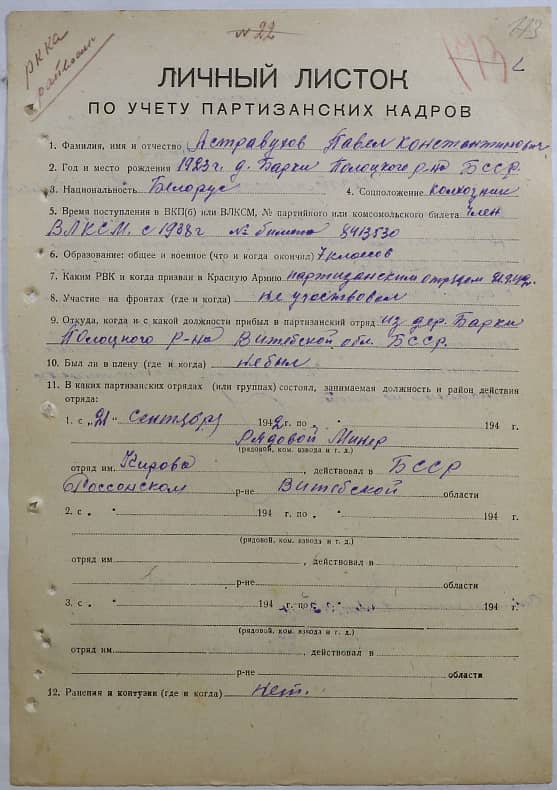 РККА
№ 22
173
ЛИЧНЫЙ ЛИСТОК
ПО УЧЕТУ ПАРТИЗАНСКИХ КАДРОВ
1. Фамилия, имя и отчество Астравухов Павел Константинович
2. Год и место рождения 1923 г. д. Барки Полоцкого р-на БССР.
3. Национальность Белорус 4. Соцположение колхозник
5. Время поступления в ВКП(б) или ВЛКСМ, № партийного или комсомольского билета Член
ВЛКСМ. с 1938 г № билета 8413530
6. Образование: общее и военное (что и когда окончил) 7 классов
7. Каким РВК и когда призван в Красную Армию партизанским отрядом
8. Участие на фронтах (где и когда) не участвовал
9. Откуда, когда и с какой должности прибыл в партизанский отряд из дер. Барки
Полоцкого р-на Витебской обл. БССР.
10. Был ли в плену (где и когда) не был
11. В каких партизанских отрядах (или группах) состоял, занимаемая должность и район действия
отряда:
1. с „21" сентября 1942 г. по „ " 194 г.
Рядовой Минер
(рядовой, ком. взвода и т. д.)
отряд им. Кирова, действовал в БССР
Россонском р-не Витебской области
2. с „ " 194 г. по „ " 194 г.
(рядовой, ком. взвода и т. д.)
отряд им , действовал в
р-не области
3. с „ " 194 г. по „ " 194 г.
(рядовой, ком. взвода и т. д.)
отряд им , действовал в
р-не области
12. Ранения и контузии (где и когда) нет.